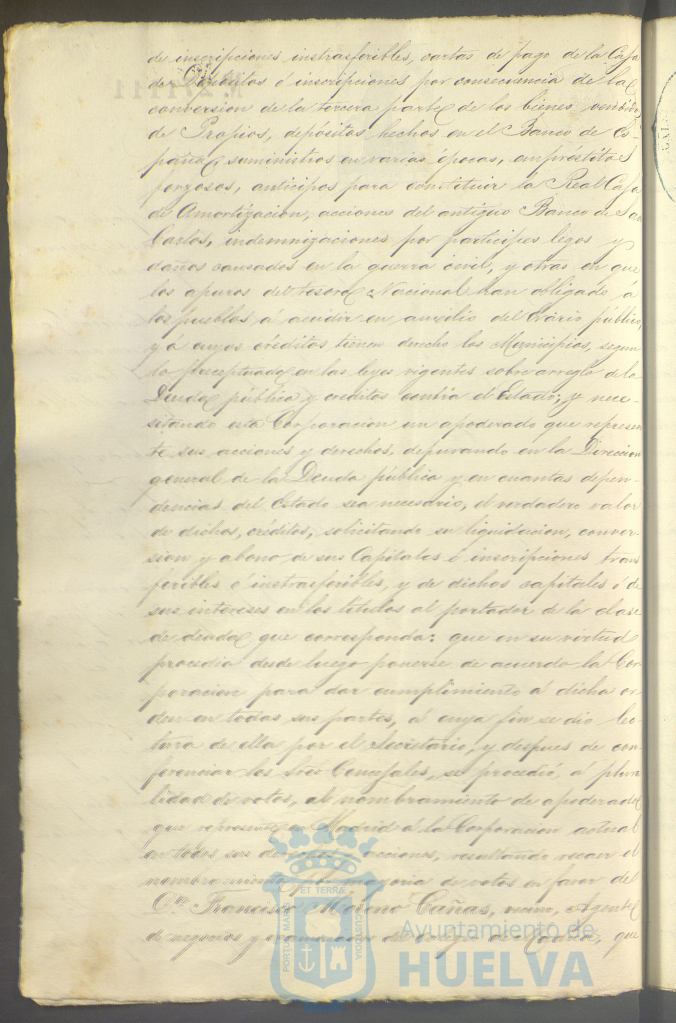 de inscripciones instrasferibles, cartas de pago de la Caja
de Depósitos é inscripciones por consecuencia de la
conversion de la tercera parte de los bienes vendidos
de Propios, depósitos hechos en el Banco de Es-
paña, suministros en varias épocas, empréstitos
forzosos, anticipos para constituir la Real Caja
de Amortizacion, acciones del antiguo Banco de San
Carlos, indemnizaciones por partícipes legos y
daños causados en la guerra civil, y otras en que
los apuros del tesoro Nacional han obligado á
los pueblos á acudir en auxilio del Erario público,
y á cuyos créditos tienen derecho los Municipios, segun
lo preceptuado en las leyes vigentes sobre arreglo de la
Deuda pública y créditos contra el Estado; y nece-
sitando esta Corporacion un apoderado que represen
te sus acciones y derechos, depurando en la Direccion
general de la Deuda pública y en cuantas depen-
dencias del Estado sea necesario, el verdadero valor
de dichos créditos, solicitando su liquidacion, conver-
sion y abono de sus Capitales é inscripciones trans
feribles é instrasferibles, y de dichos capitales ó de
sus intereses en los títulos al portador de la clase
de deuda que corresponda: que en su virtud
procedia desde luego ponerse de acuerdo la Cor
poracion para dar cumplimiento á dicha or
den en todas sus partes, á cuyo fin se dio lec
tura de ella por el Secretario, y despues de con-
ferenciar los Sres Concejales, se procedió, á plura
lidad de votos, al nombramiento de apoderado
que represente en Madrid á la Corporacion actual
en todos sus derechos y acciones, resultando recaer el
nombramiento por mayoria de votos en favor del
Dn Francisco Moreno Cañas, Agente
de negocios y de, que
PORTUS MARIS ET TERRÆ CUSTODIA
Ayuntamiento de
HUELVA